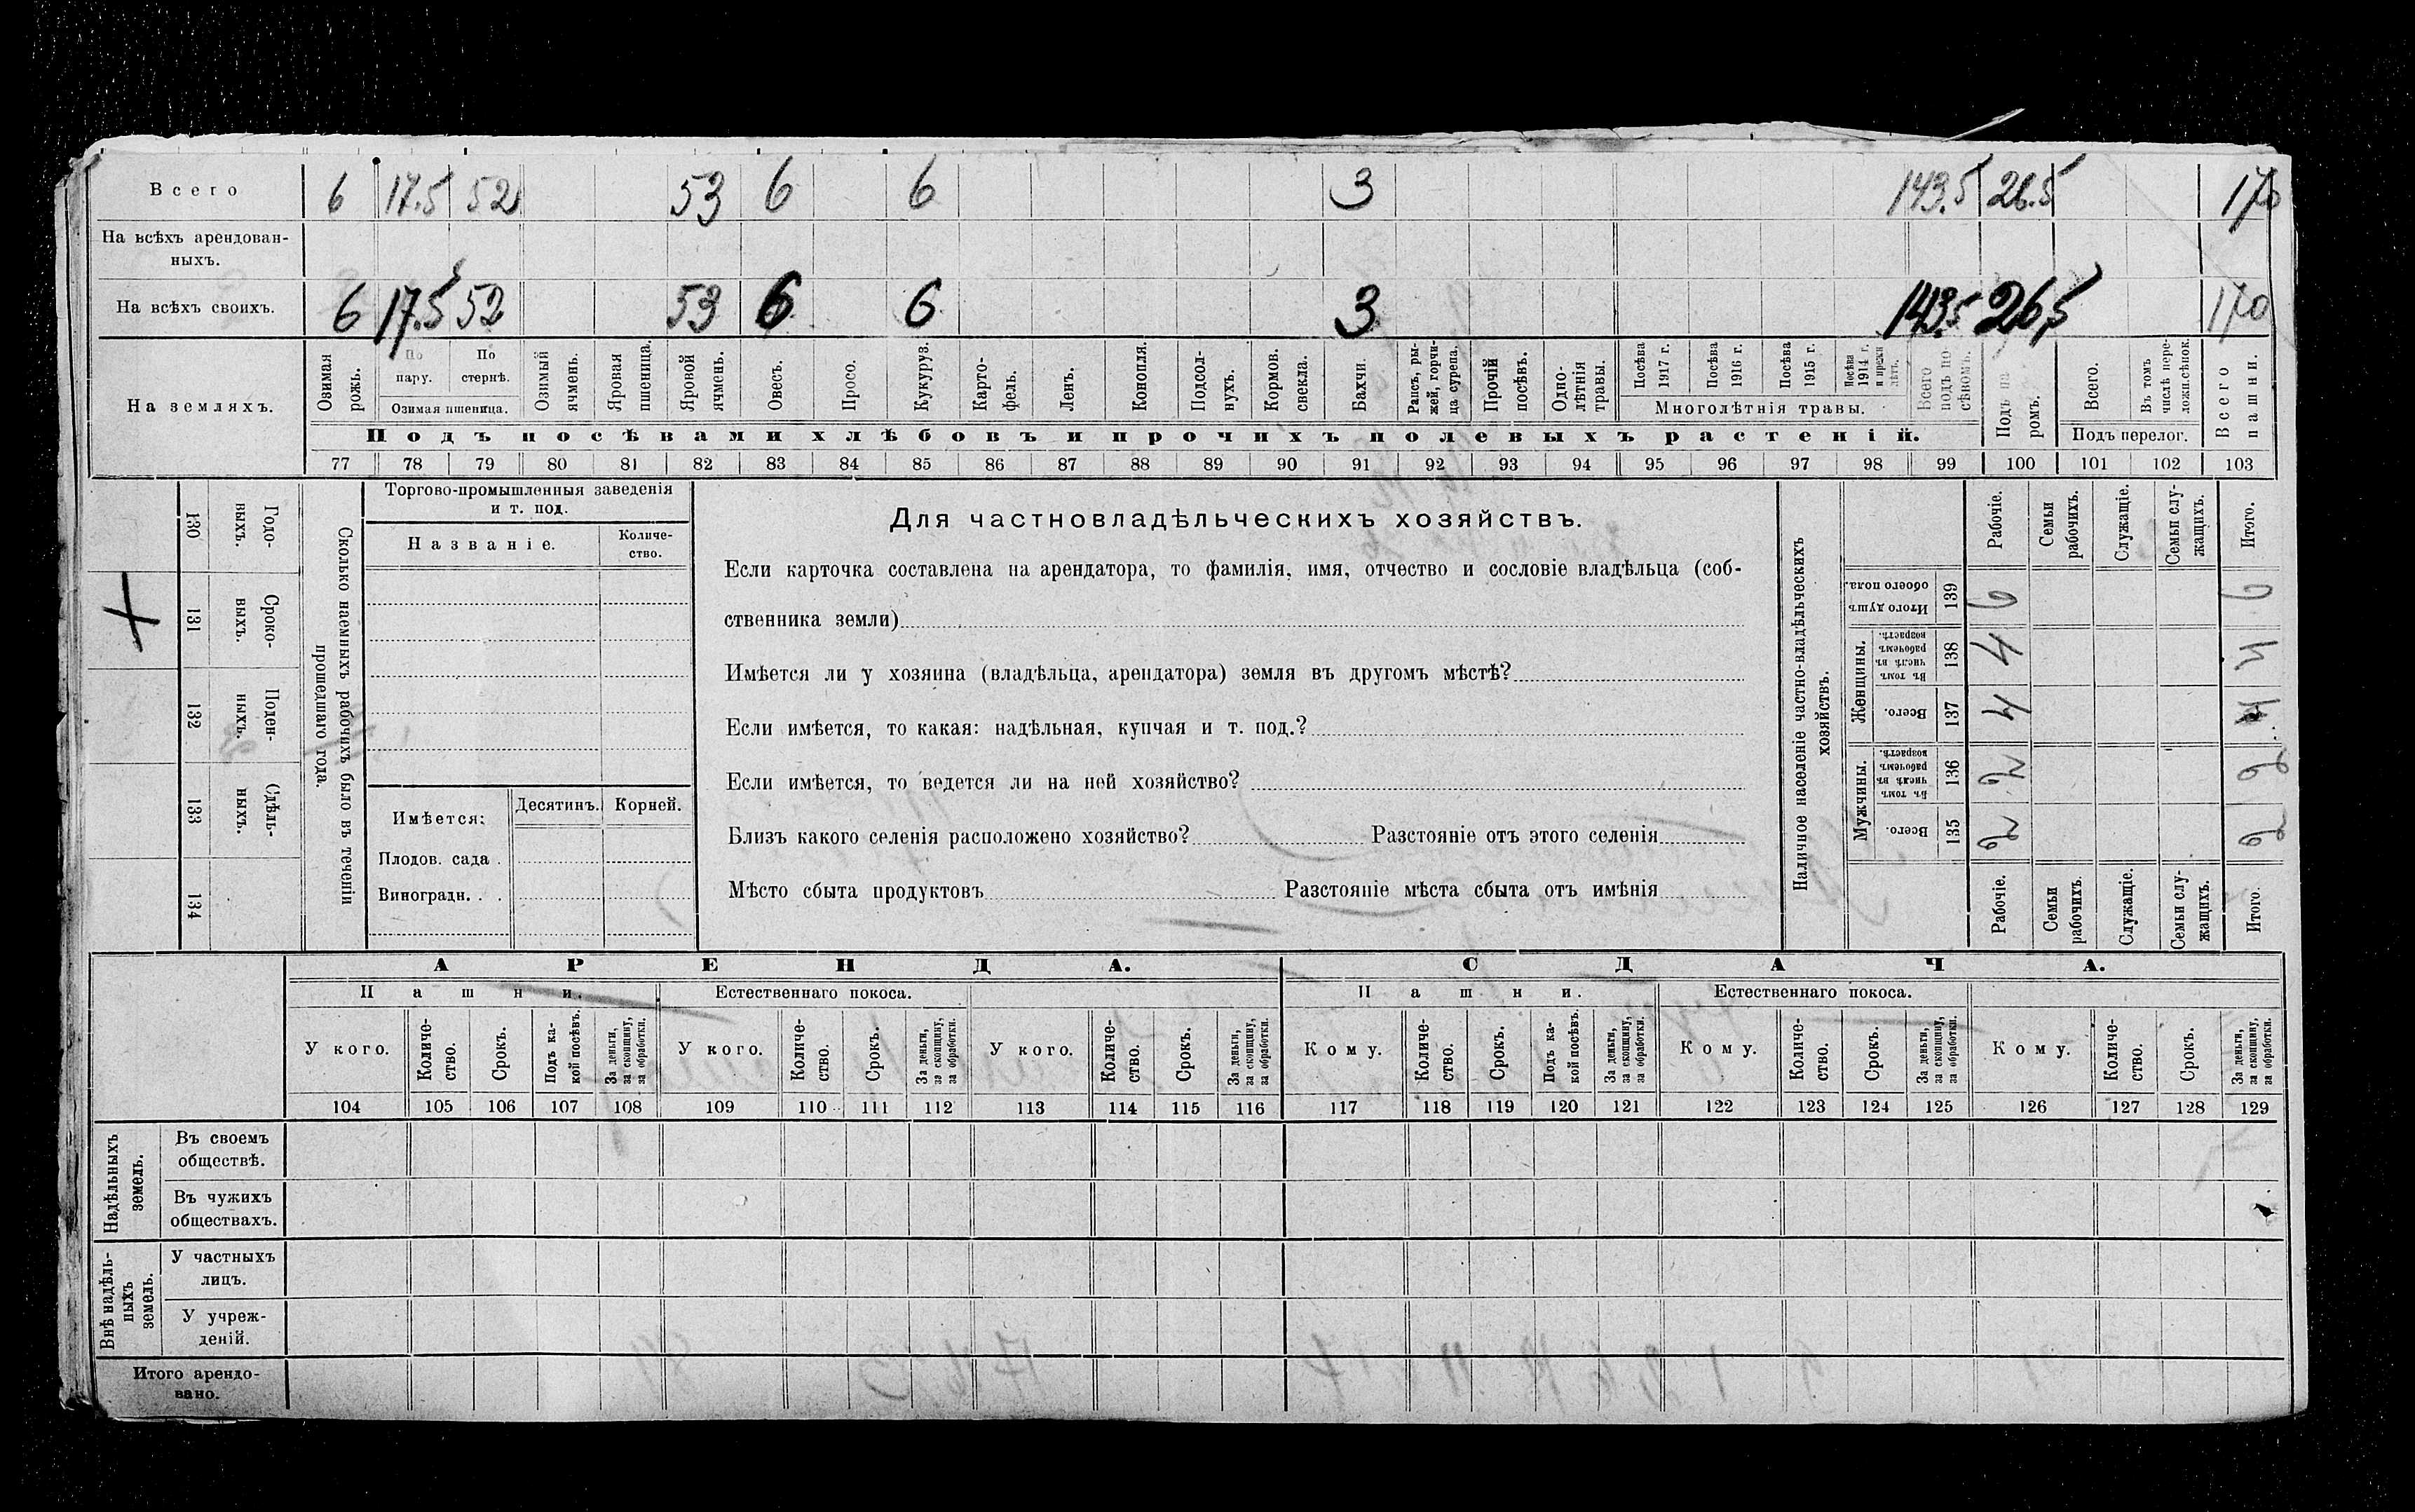 Всего 6 17.5 52 53 6 6 3 143.5 26.5 170
На всѣхъ арендован-
ныхъ.
На всѣхъ своихъ. 6 17.5 52 53 6 6 3 143.5 26,5 170
На земляхъ.
Озимая рожь.
По пару.
По стернѣ.
Озимая пшеница.
Озимый ячмень.
Яровая пшеница.
Яровой ячмень.
Овесъ.
Просо.
Кукуруз.
Карто-
фель.
Ленъ.
Конопля.
Подсол-
нухъ.
Кормов. свекла.
Бахчи.
Рапсъ, ры-
жей, горчи-
ца сурепа.
Прочій посѣвъ.
Одно-
лѣтнія травы.
Посѣва 1917 г.
Посѣва 1916 г.
Посѣва 1915 г.
Посѣва 1914 г. и прежн лѣтъ.
Многолѣтнія травы.
Всего подъ по сѣвомъ.
Подъ па ромъ.
Всего.
Въ томъ числѣ пере-
ложн. сѣнок.
Подъ перелог.
Всего пашни.
Подъ посѣвами хлѣбовъ и прочихъ полевыхъ растеній.
77 78 79 80 81 82 83 84 85 86 87 88 89 90 91 92 93 94 95 96 97 98 99 100 101 102 103
130 Годо-
выхъ.
131 Сроко-
выхъ.
132 Поден-
ныхъ.
133 Сдѣль-
ныхъ.
134
Сколько наемныхъ рабочихъ было въ теченіи
прошедшаго года.
Торгово-промышленныя заведенія
и т. под.
Названіе.
Количе-
ство.
Имѣется:
Десятинъ. Корней.
Плодов. сада .
Виноградн. . .
Для частновладѣльческихъ хозяйствъ.
Если карточка составлена на арендатора, то фамилія, имя, отчество и сословіе владѣльца (соб-
ственника земли)
Имѣется ли у хозяина (владѣльца, арендатора) земля въ другомъ мѣстѣ?
Если имѣется, то какая: надѣльная, купчая и т. под.?
Если имѣется, то ведется ли на ней хозяйство?
Близъ какого селенія расположено хозяйство? Разстояніе отъ этого селенія
Мѣсто сбыта продуктовъ Разстояніе мѣста сбыта отъ имѣнія
Наличное населеніе частно-владѣльческихъ
хозяйствъ.
Рабочіе.
Семьи рабочихъ.
Служащіе.
Семьи слу-
жащихъ.
Итого.
Итого душъ обоего пола. 139 6 6
Женщины.
Въ томъ числѣ въ рабочемъ возрастѣ. 138 4 4
Всего. 137 4 4
Мужчины.
Въ томъ числѣ въ рабочемъ возрастѣ. 136 2 2
Всего. 135 2 2
Рабочіе.
Семьи рабочихъ.
Служащіе.
Семьи слу-
жащихъ.
Итого
АРЕНДА. СДАЧА.
Пашни. Естественнаго покоса. Пашни. Естественнаго покоса.
У кого.
Количе-
ство.
Срокъ.
Подъ ка-
кой посѣвъ.
За деньги, за скопщину, за обработки.
У кого.
Количе-
ство.
Срокъ.
За деньги, за скопщину, за обработки.
У кого.
Количе-
ство.
Срокъ.
За деньги, за скопщину, за обработки.
Кому.
Количе-
ство.
Срокъ.
Подъ ка-
кой посѣвъ.
За деньги, за скопщину, за обработки.
Кому.
Количе-
ство.
Срокъ.
За деньги, за скопщину, за обработки.
Кому.
Количе-
ство.
Срокъ.
За деньги, за скопщину, за обработки.
104 105 106 107 108 109 110 111 112 113 114 115 116 117 118 119 120 121 122 123 124 125 126 127 128 129
Надѣльныхъ
земель.
Въ своемъ
обществѣ.
Въ чужихъ
обществахъ.
Внѣ надѣль-
ныхъ
земель.
У частныхъ
лицъ.
У учреж-
деній.
Итого арендо-
вано.